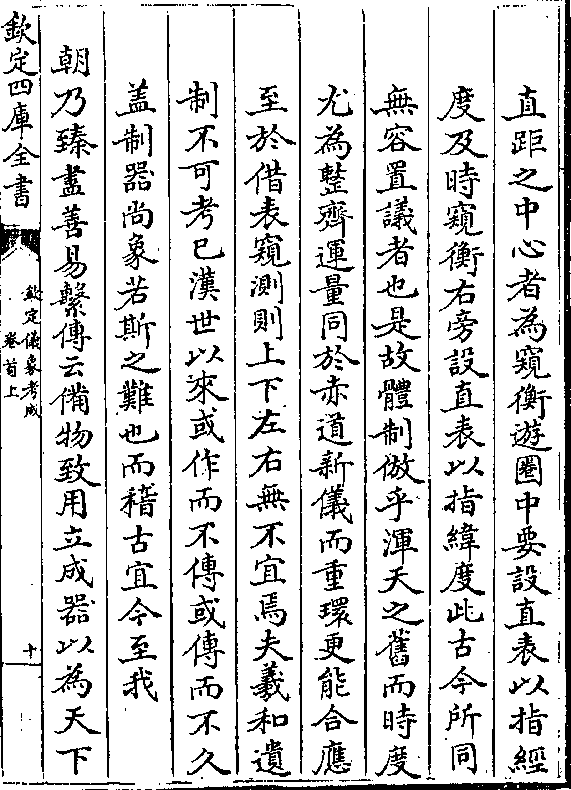 直距之中心者為窺衡遊圈中要設直表以指經
度及時窺衡右旁設直表以指緯度此古今所同
無容置議者也是故體制倣乎渾天之舊而時度
尤為整齊運量同於赤道新儀而重環更能合應
至於借表窺測則上下左右無不宜焉夫羲和遺
制不可考已漢世以來或作而不傳或傳而不久
盖制器尚象若斯之難也而稽古宜今至我
朝乃臻盡善易繫傳云備物致用立成器以為天下
欽定四庫全書
欽定儀象考成
卷首上
十